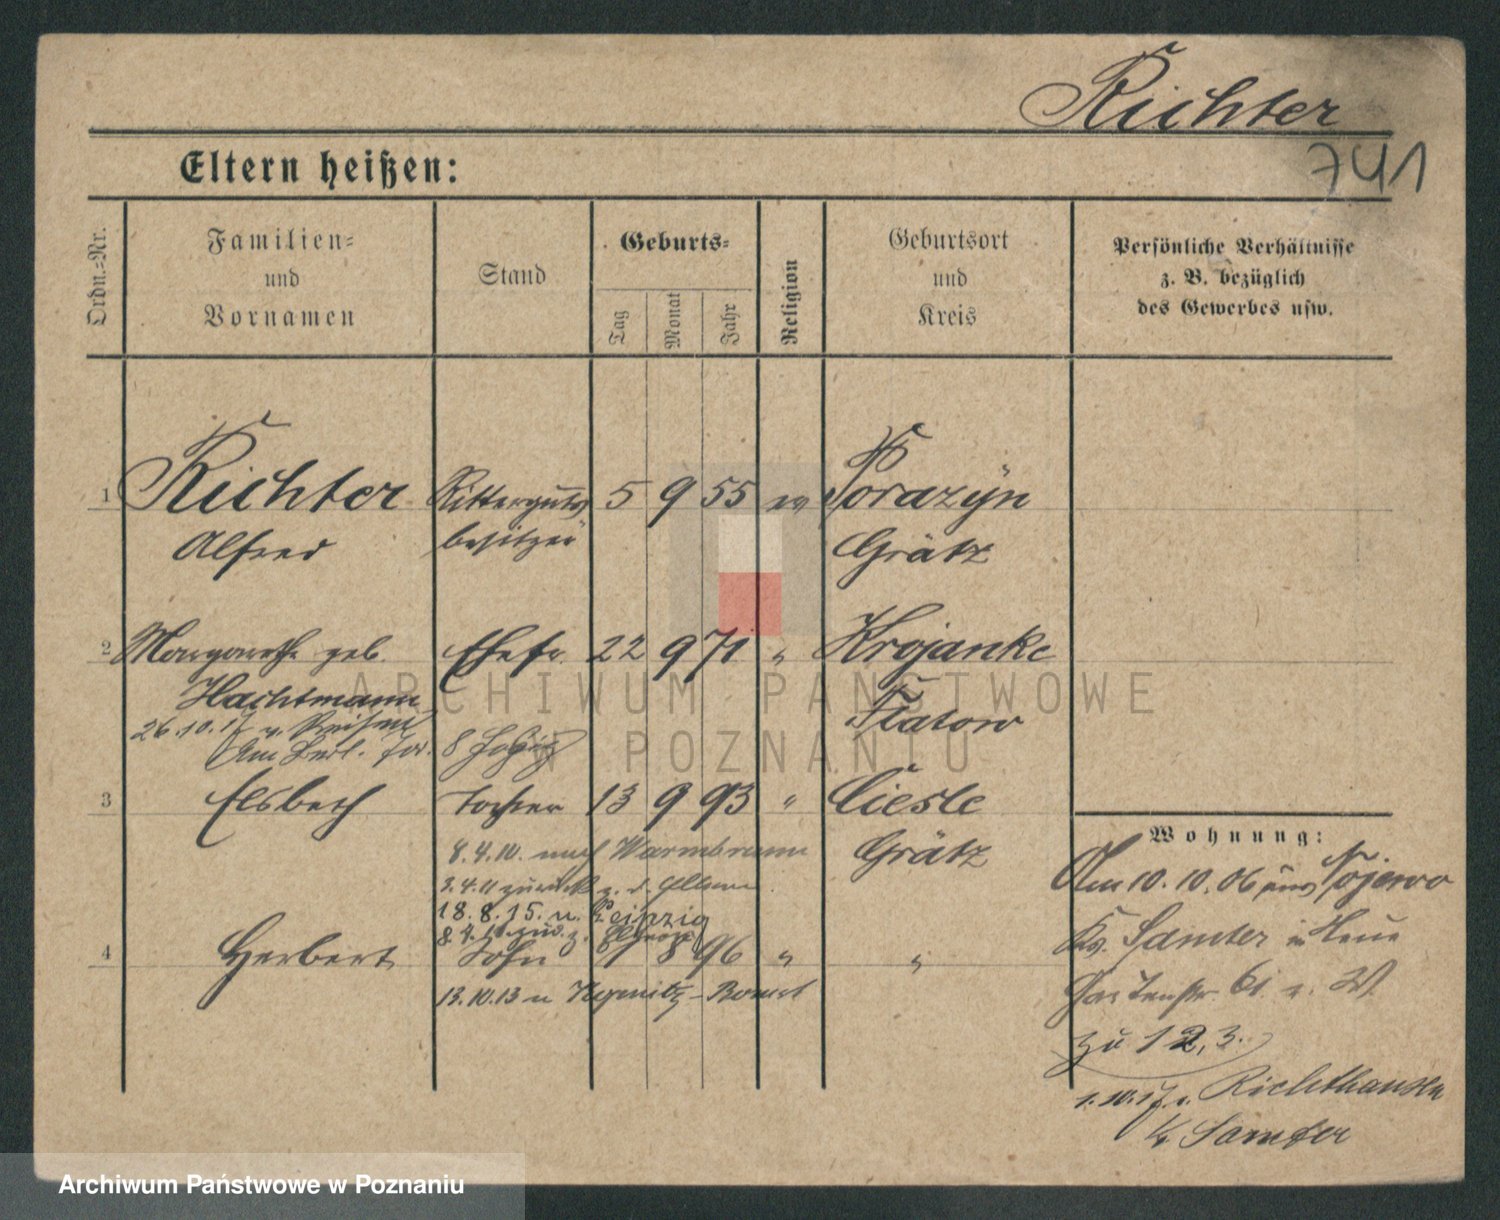 Richter
741
Eltern heißen:
Ordn.-Nr.
Familien-
und
Vornamen
Stand
Geburts-
Tag
Monat
Jahr
Religion
Geburtsort
und
Kreis
Persönliche Verhältnisse
z. B. bezüglich
des Gewerbes usw.
1 Richter Ritterguts 5 9 55 ev Porazÿn
Alfred besitzer Grätz
2 Margarethe geb. Ehefr. 22 9 71 " Krojanke
Hachtmann Flatow
26.10.17 n. Reisen
Am Berl. Tor. 8
3 Elsbeth Tochter 13 9 93 " Ciesle
Grätz
8.4.10. nach Warmbrunn
3.4.11 zurück z. d. Eltern
18.8.15. n. Leipzig
8.4. zur. z.
4 Herbert Sohn 1 8 96 " "
13.10.13 n - Bomst
Wohnung:
Am 10.10.06 aus Nojewo
Kr. Samter in Neue
Gartenstr. 61. v. W
zu 1 2, 3.
1.10.17 n. Richthausen
Kr. Samter
ARCHIWUM PAŃSTWOWE
W POZNANIU
Archiwum Państwowe w Poznaniu